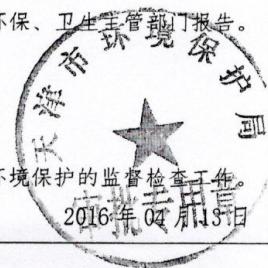 环保、卫生主管部门报告。
天津市环境保护局
环境保护的监督检查工作。
审批专用章
2016 年 04 月 13 日